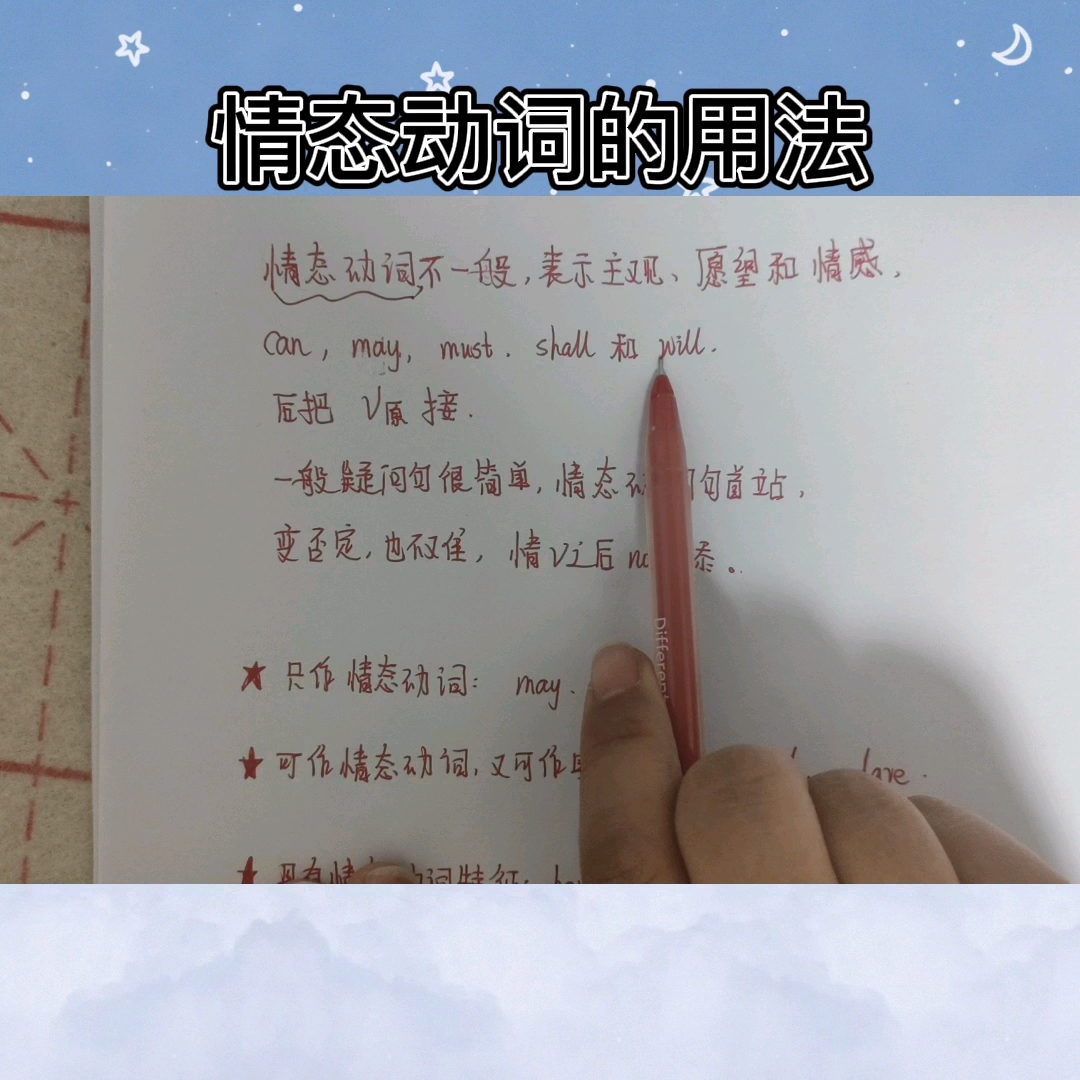 情态动词的用法
情态动词不一般，表示主观、愿望和情感，
can, may, must. shall 和 will.
后把 V原 接.
一般疑问句很简单，情态动词句首站，
变否定，也不难，情V之后 添。
Different
★ 只作情态动词： may.
★ 可作情态动词，又可作
★ 具有情态动词特征：